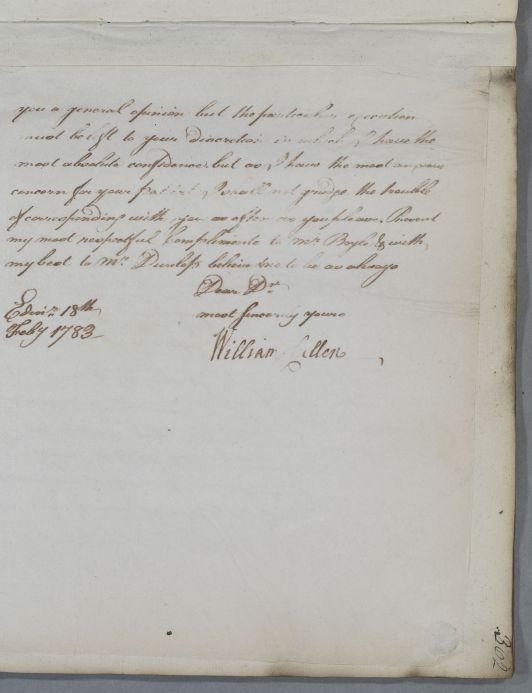 you a general opinion but the particular execution
must be left to your discretion in which I have the
most absolute confidence but as I have the most anxious
concern for your patient I shall not grudge the trouble
of corresponding with you as often as you please. Present
my most respectful Compliments to Mrs Boyle & with
my best to Mrs Dunlop believe me to be as always
Dear Dr
most sincerely yours
William Cullen
Edinr. 18th
Feby 1783
302